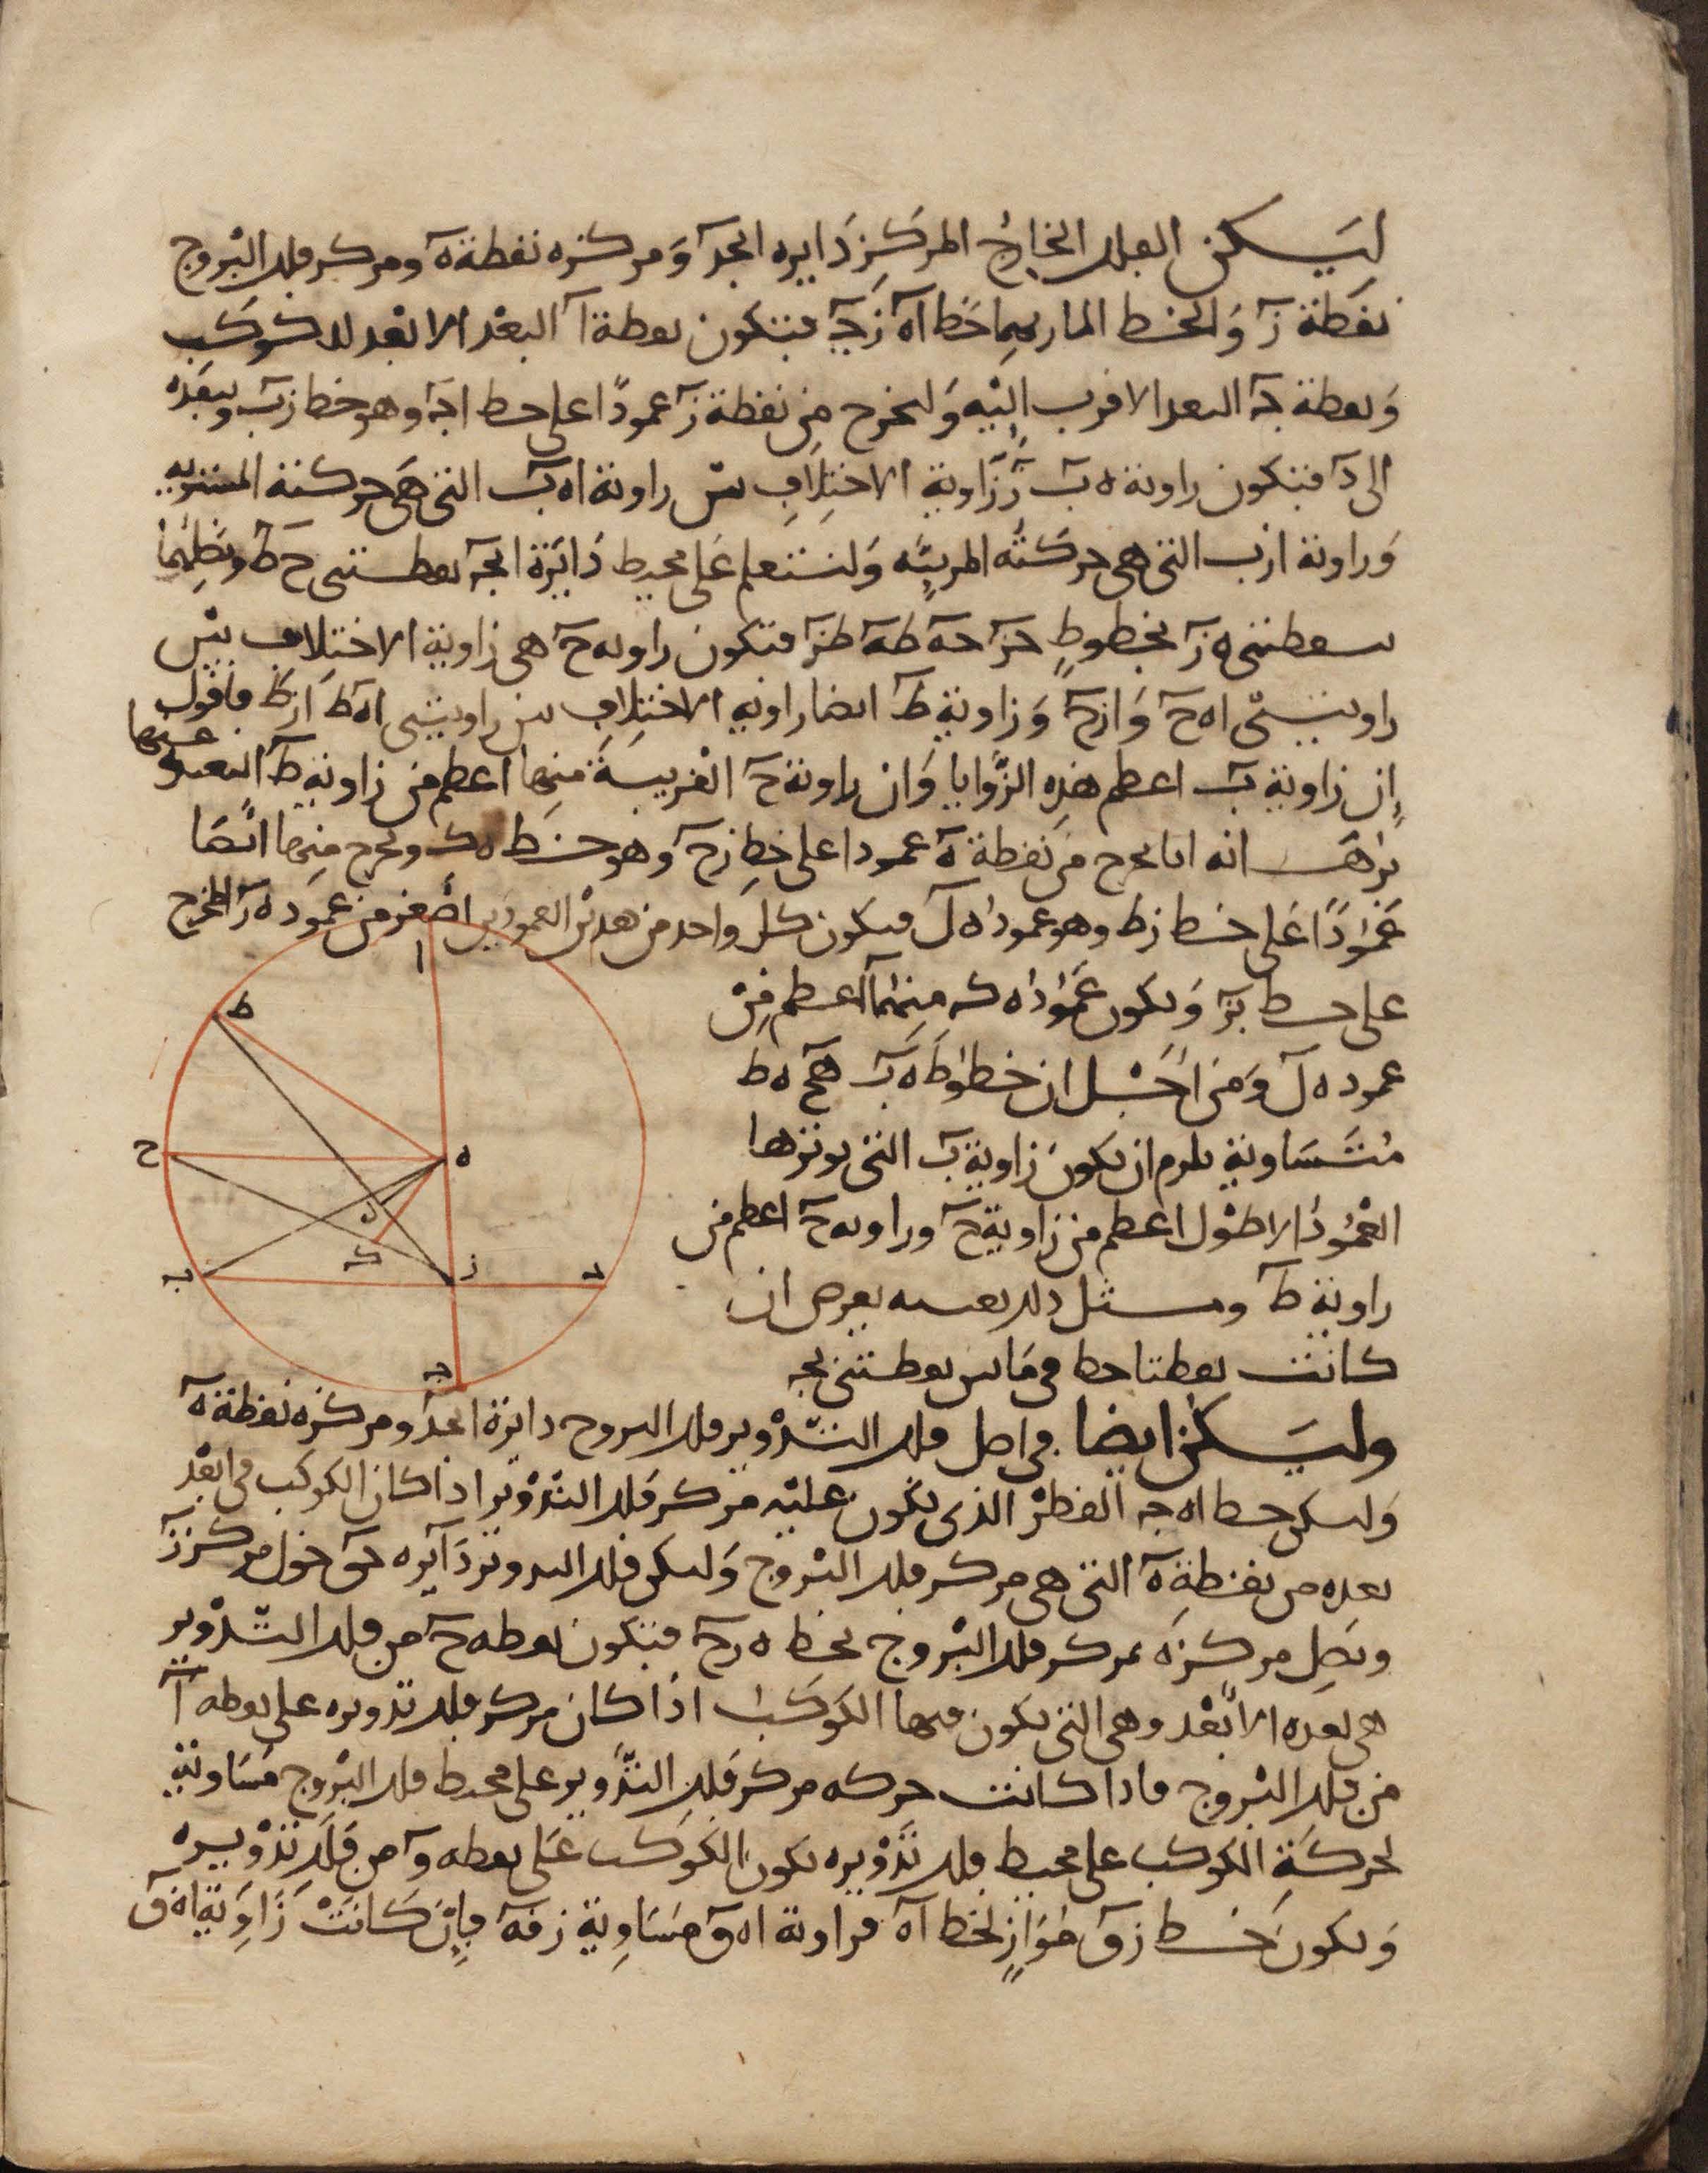 ليكن الفلك الخارج المركز دايره ابجد ومركزه نقطة ه ومركز فلك البروج
نقطة ز والخط المار بهما خط اه زج فتكون نقطة ا البعد الابعد للكوكب
ونقطة ج البعد الاقرب اليه ولنخرج من نقطة ز عمودا على خط اج وهو خط زب وينفذه
الى د فتكون زاوية ه ب ز زاوية الاختلاف بين زاوية اه ب التى هى حركته المستويه
وزاوية ازب التى هى حركته المرييه ولنتعلم على محيط دائرة ابج نقطتى ح ط ونصلهما
بنقطتى ه ز بخطوط حز حه طه طز فتكون زاويه ح هى زاوية الاختلاف بين
زاويتى اه ح وازح وزاوية ط ايضا زاويه الاختلاف بين زاويتى اه ط ازط فاقول
ان زاوية ب اعظم هذه الزوايا وان زاوية ح القريبة منها اعظم من زاوية ط البعيدة
عنها
برهنه انه انا نخرج من نقطة ه عمودا على خط زح وهو خط ه ك ونخرج منها ايضا
عمودا على خط زط وهو عمود ه ل فيكون كل واحد من هذين العمودين اصغر من عمود ه ز المخرج
على خط بز ويكون عمود ه ك منهما اعظم من
عمود ه ل ومن اجل ان خطوط ه ب هح ه ط
متساوية يلزم ان يكون زاوية ب التى يوترها
العمود الاطول اعظم من زاوية ح وزاويه ح اعظم من
زاوية ط ومثل ذلك بعينه يعرض ان
كانت نقطتا حط فى ما بين نقطتى بج
ا
ط
ح
ه
ل
ك
ب
ز
د
ج
وليكن ايضا فى اصل فلك التدوير فلك البروج دايرة ابجد ومركزه نقطة ه
وليكن خط اه ج القطر الذى يكون عليه مركز فلك التدوير اذا كان الكوكب فى ابعد
بعده من نقطة ه التى هى مركز فلك البروج وليكن فلك التدوير دايره حو حول مركز ز
ونصل مركزه بمركز فلك البروج بخط ه زح فتكون نقطه ح من فلك التدوير
هى بعده الابعد وهى التى يكون فيها الكوكب اذا كان مركز فلك تدويره على نقطه ا
من فلك البروج فاذا كانت حركه مركز فلك التدوير على محيط فلك البروج مساوية
لحركة الكوكب على محيط فلك تدويره يكون الكوكب على نقطه و من فلك تدويره
ويكون خط زو مواز لخط اه فزاوية اه و مساوية زوه فان كانت زاوية اه و